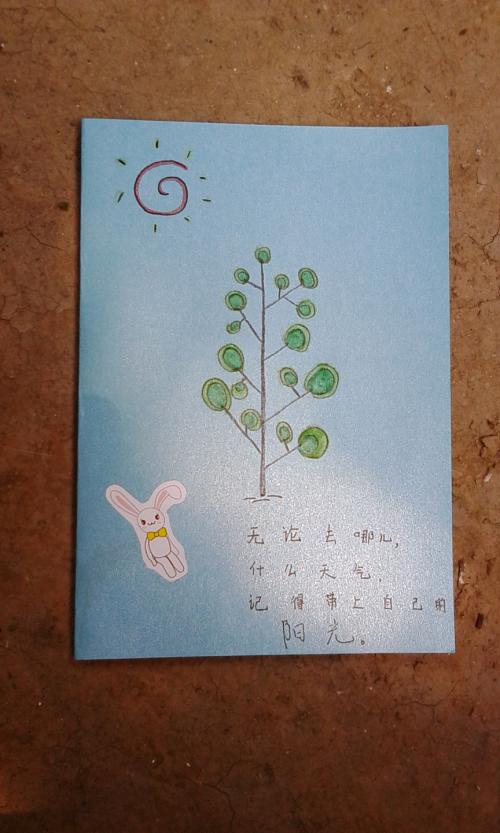 无论去哪儿,
什么天气,
记得带上自己的
阳光。